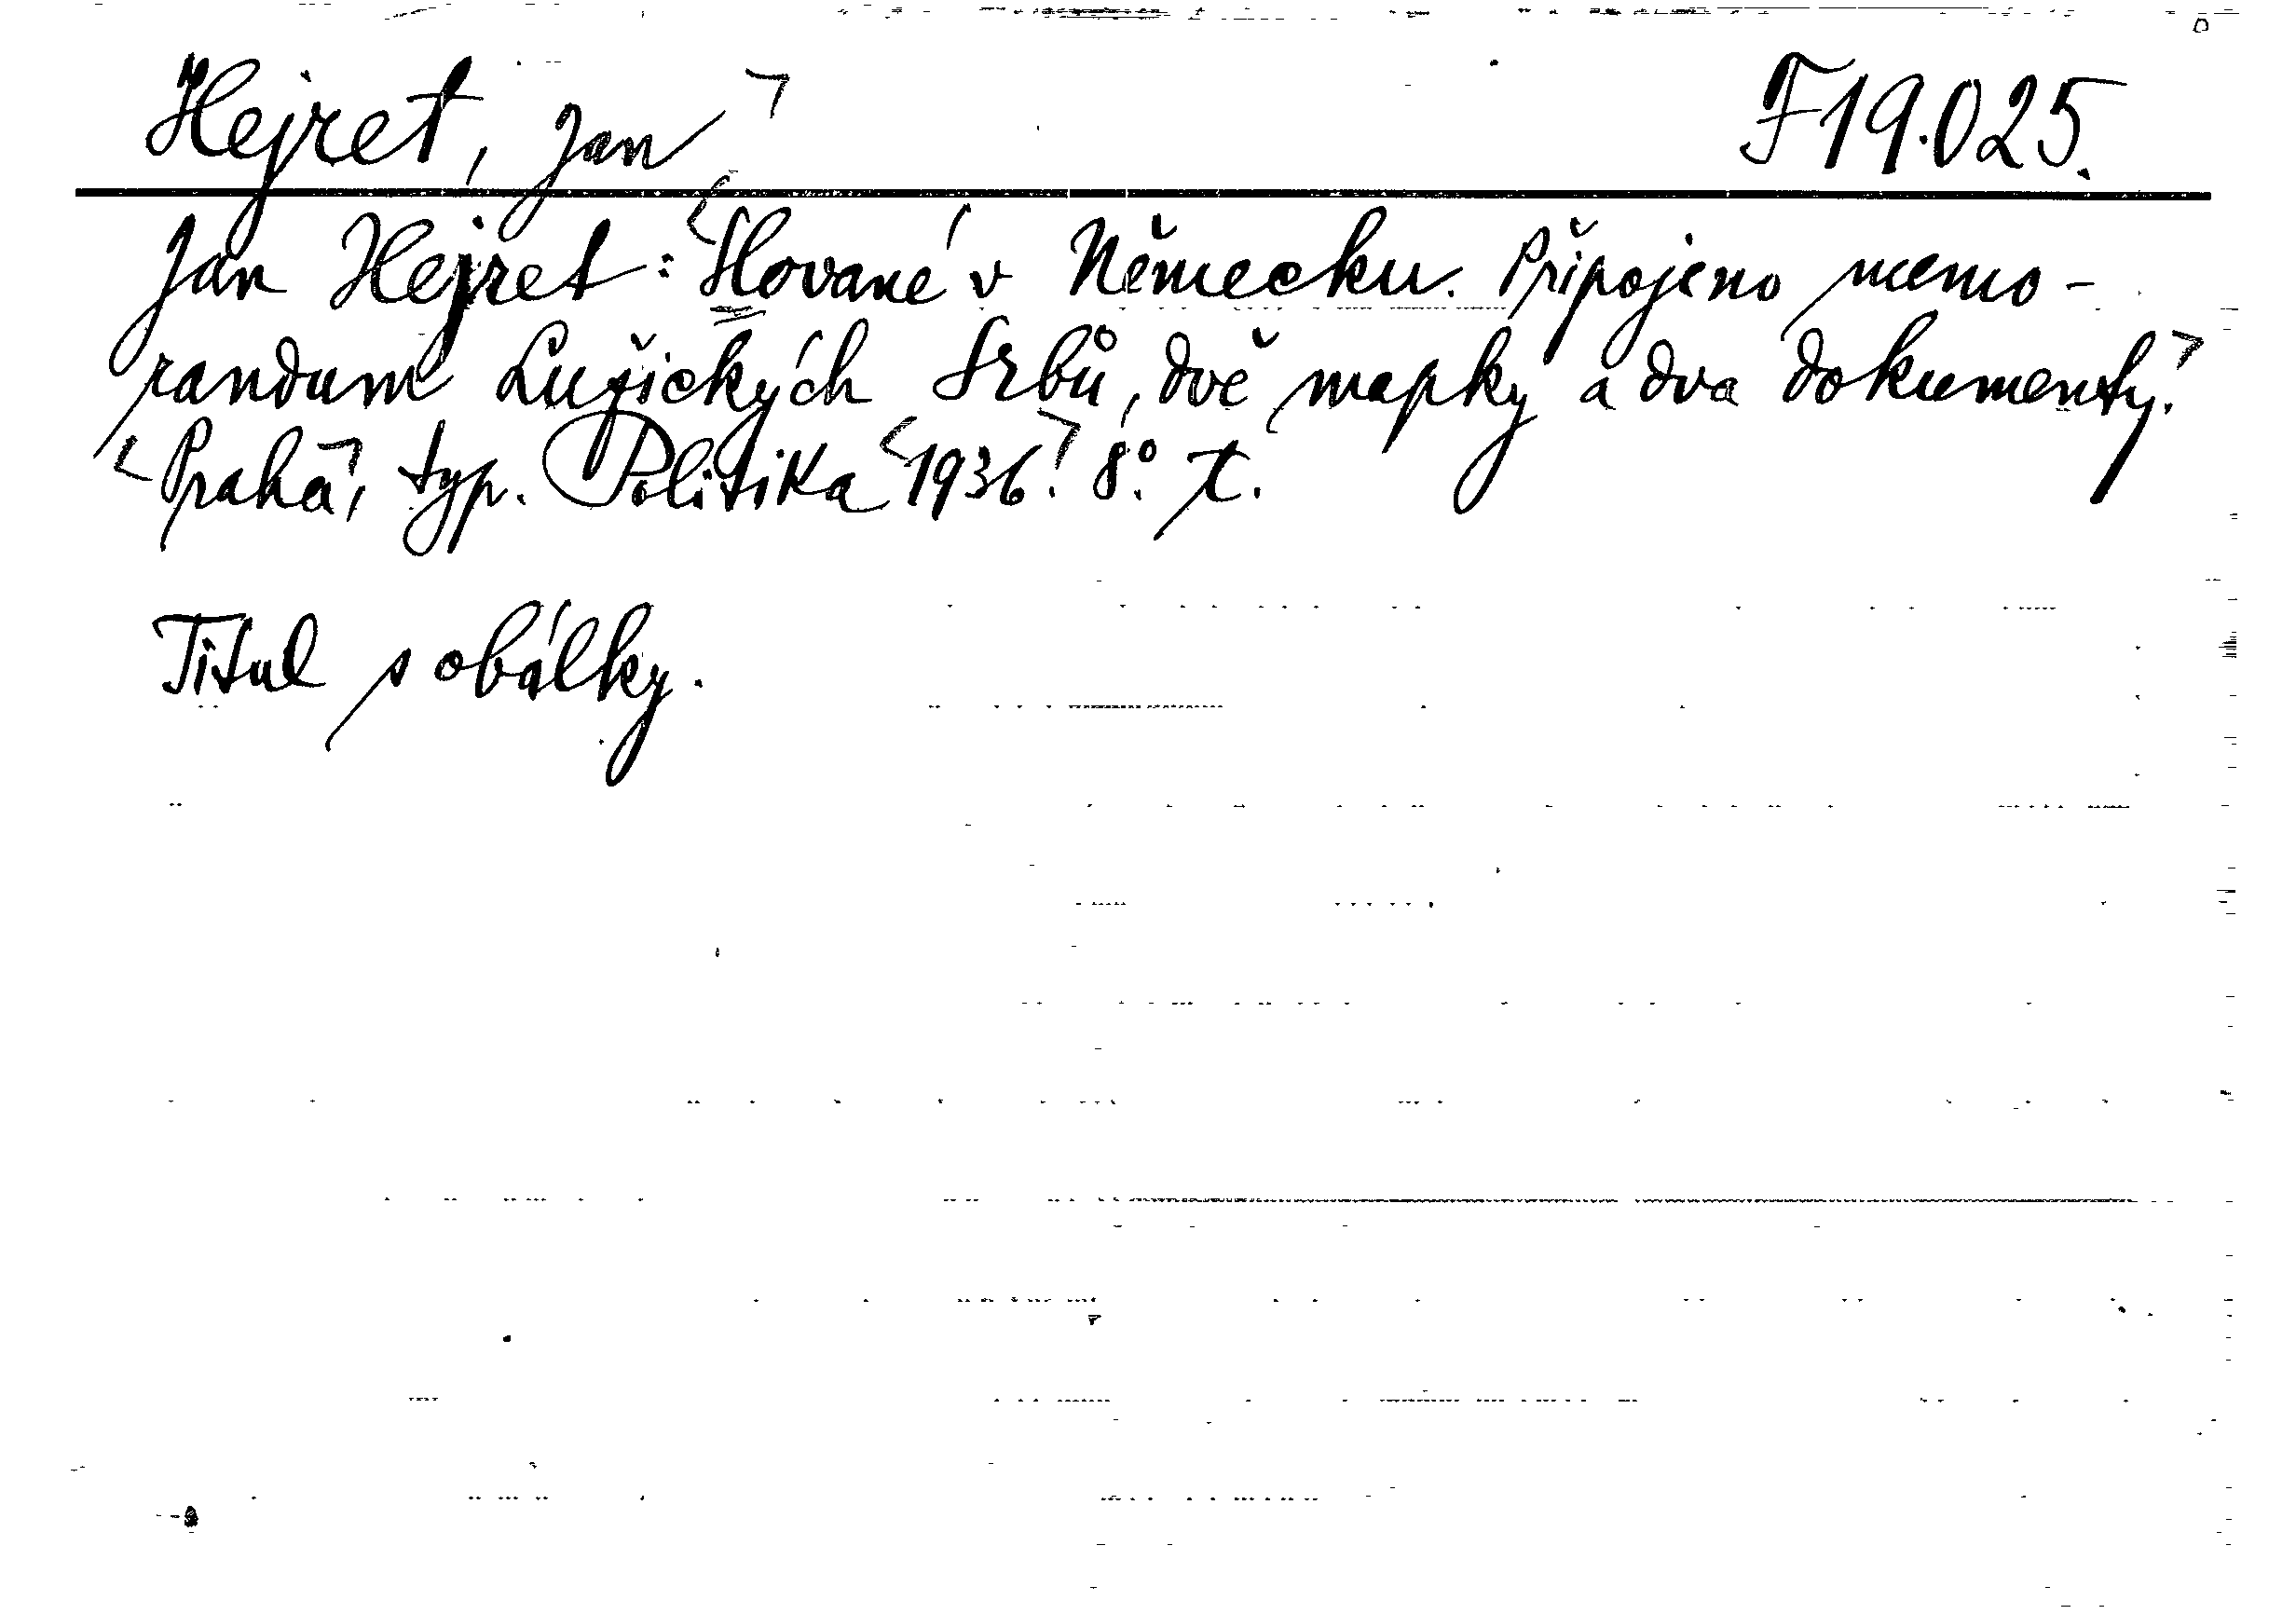 Hejret, Jan F19.025.
Jan Hejret: Slované v Německu. Připojeno memo-
randum Lužických Srbů, dvě mapky a dva dokumenty.
Praha, typ. Politika 1936. 8°. X.
Titul s obálky.